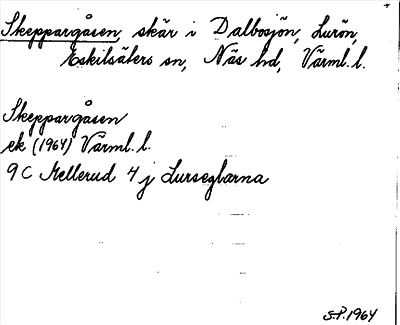 Skeppargåsen, skär i Dalbosjön, Lurön,
Eskilsäters sn, Näs hd, Värml. l.
Skeppargåsen
ek (1964) Värml. l.
9C Mellerud 4 j Lurseglarna
S.P. 1964